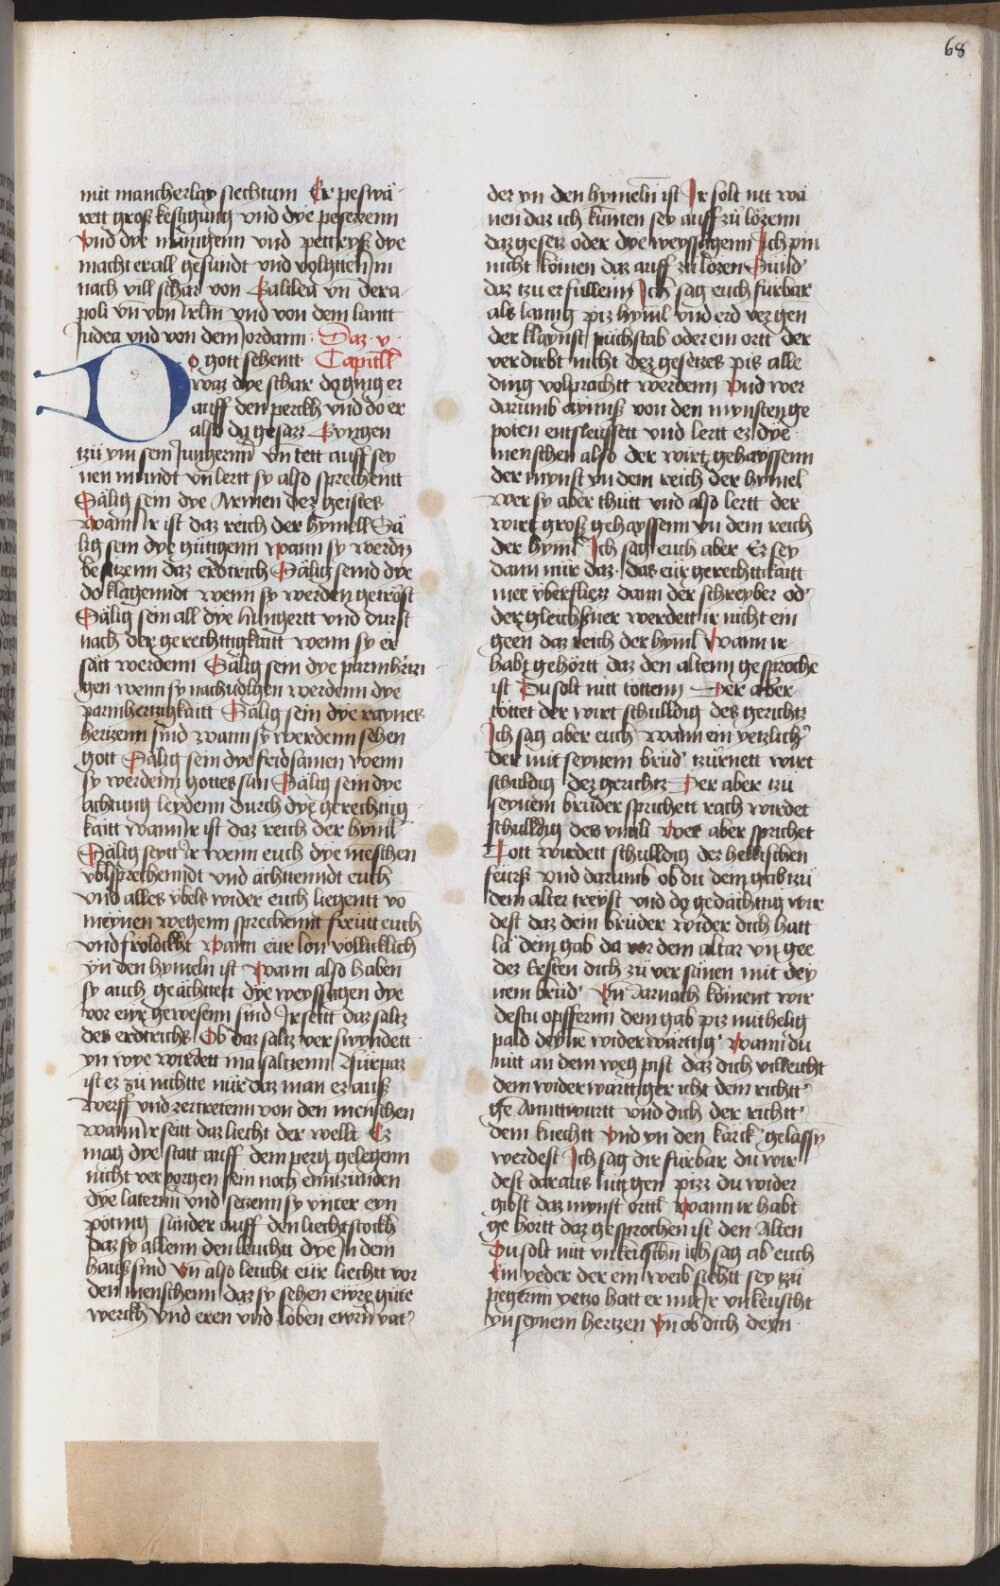 68
mit mancherlay siechtum Er peswä
rett groß kestigung vnd dye pesezenn
vnd dye mänigenn vnd petteryß dye
macht er all gesundt vnd volgtten im
nach vill schar von Galilea vn deca
poli vn von irlm vnd von dem lantt
Judea vnd von dem Jordann · Daz · v ·
Do gott sehentt Capitell
waz dye schar do gyng er
auff den perckh vnd do er
also do gesazz Gyngen
tzü ym sein Jungernn vn tett auff sey
nen mundt vn lertt sy also sprechentt
Sälig sein dye Armen dez geistes
wann ir ist daz reich der hymell Sä
lig sein dye gütigenn wann sy werdn
besitzenn daz erdtrich Sälig seind dye
do klagenndt wenn sy werden getröst
Sälig sein all dye hungertt vnd durst
nach der gerechttigkaitt wenn sy er
satt werdenn Sälig sein dye parmhertzi
gen wenn sy nachuolgen werdenn dye
parmhertzigkaitt Sälig sein dye raynes
hertzenn sind wann sy werdenn sehen
gott Sälig sein dye fridsamen wenn
sy werdenn gottes sün Sälig sein dye
achtung leydenn durch dye gerechtig
kaitt wann ir ist daz reich der hyml
Sälig seytt ir wenn euch dye menschen
vbelsprechenndt vnd ächttenndt euch
vnd alles ybels wider euch liegentt vo
meynen wegenn sprechennt freutt euch
vnd frolockht wann eur lon vollicklich
yn den hymeln ist wann also haben
sy auch geächttett dye weyssagen dye
vor ewr gewesenn sind Ir seitt daz saltz
des erdtrichs Ob daz saltz verswyndett
yn wye wirdett ma saltzenn Fürpaz
ist ez zü nichtte nür daz man ez auß
werff vnd zertretenn von den menschen
wann ir seitt daz liecht der wellt Ez
mag dye statt auff dem perg gelegenn
nicht verporgen sein noch enntzünden
dye laternn vnd setzenn sy vnter eyn
poting sünder auff den liechtstockh
daz sy allenn den leuchtt dye in dem
hauß sind vn also leucht eur liechtt vor
den menschenn daz sy sehen ewre güte
werckh vnd eren vnd loben ewrn vat
der yn den hymeln ist Ir solt nit wä
nen daz ich kumen sey auff zü lözenn
daz gesetz oder dye weyssagenn Ich pin
nicht komen daz auff zu lözen Sünd
daz tzu erfullenn Ich sag euch furbar
als lanng piz hyml vnd erd vergen
der klaynst püchstab oder ein ortt der
verdirbt nicht dez gesetzes pis alle
ding volprachtt werdenn vnd wer
darumb aynniß von den mynsten ge
poten entsleussett vnd lertt ez dye
menschen also der wirt gehayssenn
der mynst yn dem reich der hymel
wer sy aber thutt vnd also lertt der
wirt groß gehayssenn yn dem reich
der hyml Ich sag euch aber Ez sey
dann nür daz das eur gerechttikaitt
mer yberfliezz dann der schreyber od
der gleichßner werdett ir nicht ein
geen daz reich der hyml wann ir
habt gehörtt daz den altenn gesproche
ist Du solt nitt töttenn Wer aber
töttet der wirt schulldig des gerichtz
Ich sag aber euch wann ein yetzlich
der mit seynem brüd tzürnett wirt
schuldig dez gerichtz Der aber tzü
seynem brüder sprichett rach wirdet
schulldig des vrtili wer aber sprichet
Tott wirdett schulldig der hellischen
feurß vnd darumb ob du dein gab tzü
dem alter treyst vnd do gedächttig wir
dest daz dein brüder wider dich hatt
la dein gab da vor dem altar vn gee
dez Ersten dich zü versünen mit dey
nem brüd Vn darnach köment wir
destu opffernn dein gab piz mithelig
pald deyne widerwärttig wann du
nitt an dem weg pist daz dich villeicht
dem widerwarttiger icht dem richtt
ge Anntwurtt vnd dich der richtt
dem knechtt vnd yn den karck gelassn
werdest Ich sag dir furbar du wir
dest daraus nit gen pizz du wider
gibst daz mynst örttl wann ir habt
gehörtt daz gesprochen ist den Alten
Du solt nit vnkeuschn ich sag ab euch
Ein yeder der ein weib siehtt sey tzü
pegernn yetzo hatt er mit ir vnkeuscht
yn seynem hertzen Vn ob dich deyn